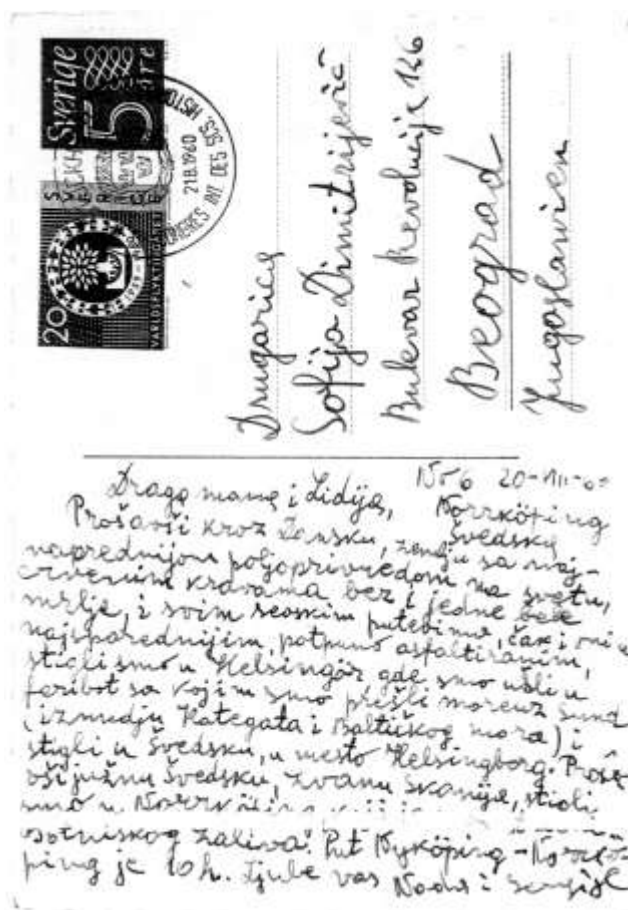 Sverige
5 öre
20
VÄRLDSFLYKTINGÅRET
SVERIGE
21.8.1960
CONGRES INT. DES SCS. HISTO
Drugarica
Sofija Dimitrijević
Bulevar Revolucije 126
Beograd
Jugoslavien
No 6 20-VIII-60
Draga mama i Lidija, Norrköping
Švedska
Prošavši kroz Dansku, zemlju sa naj-
naprednijom poljoprivredom na svetu,
crvenim kravama bez i jedne bele
mrlje, i svim seoskim putevima, čak i
najsporednijim, potpuno asfaltiranim,
stigli smo u Helsingör gde smo ušli u
feribot sa kojim smo prešli moreuz Sund
(izmedju Kategata i Baltičkog mora) i
stigli u Švedsku, u mesto Helsingborg. Proša-
vši južnu Švedsku, zvanu Skanija, stigli
smo u
zaliva. Put Nyköping-Norrkö-
ping je 10h. Ljube vas